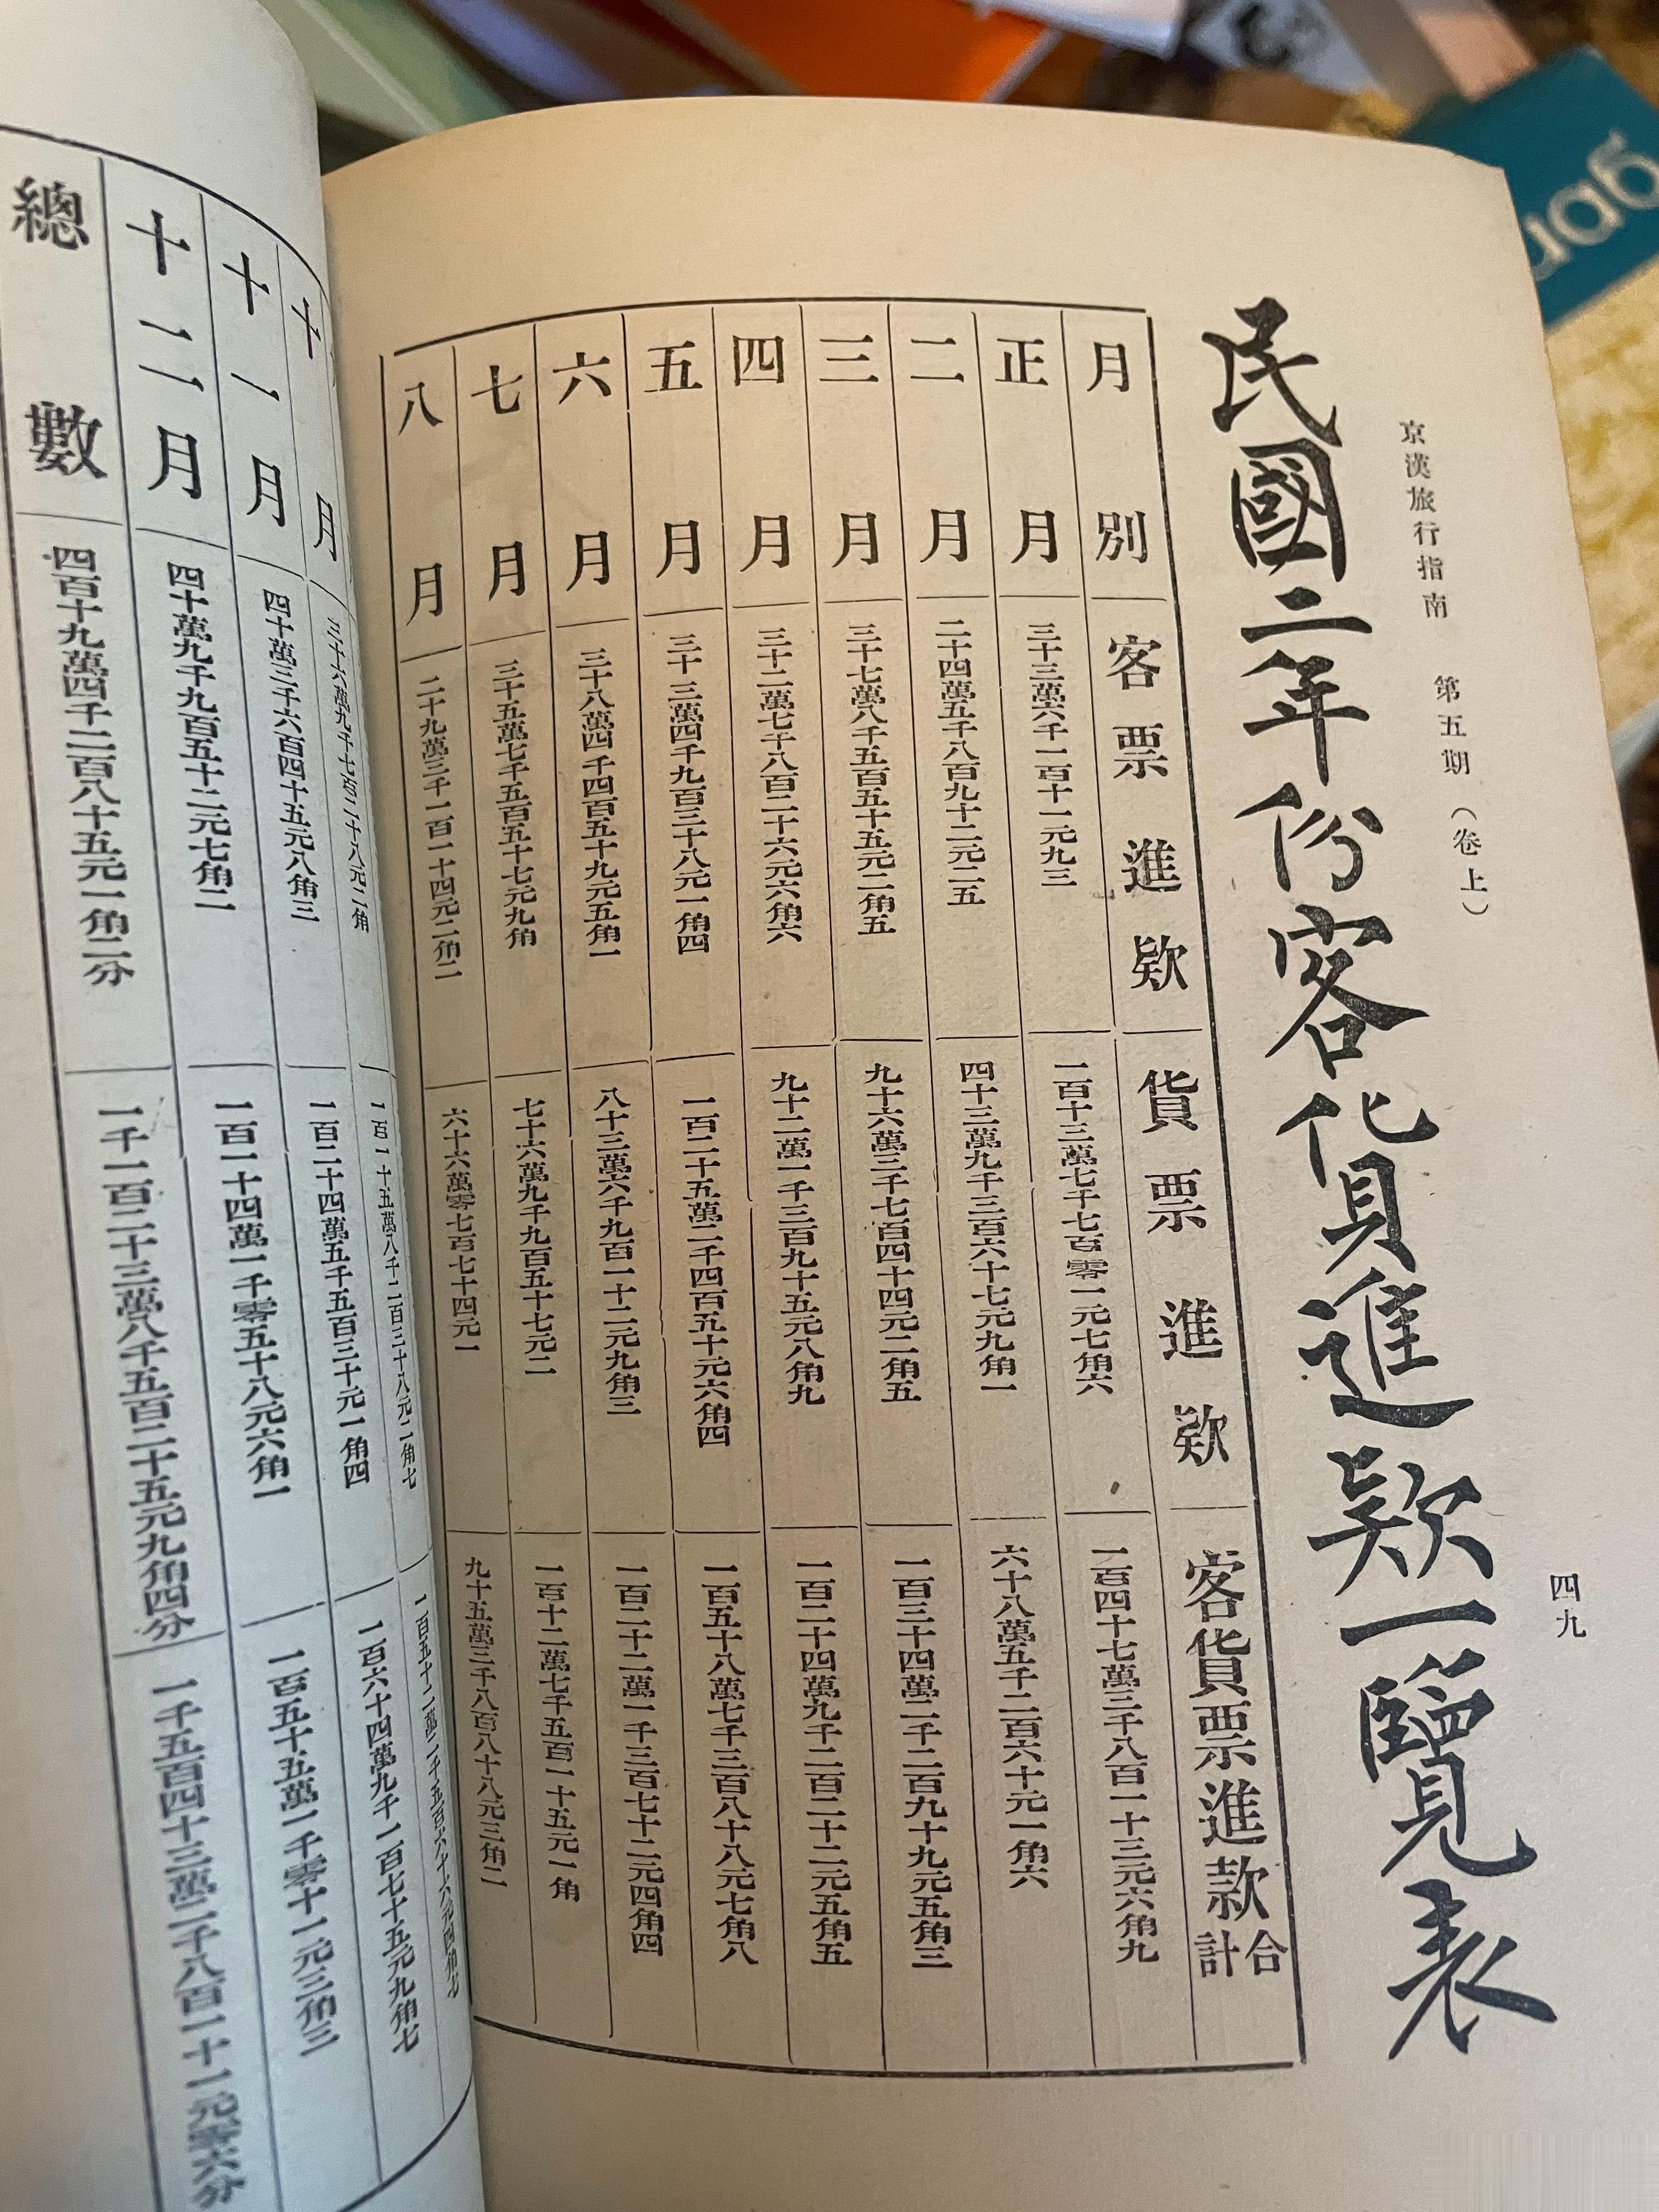 京漢旅行指南　第五期（卷上）
四九
民國二年份客貨進欵一覽表
月別　客票進欵　貨票進欵　客貨票進款合計
正月　三十三萬六千一百十一元九三　一百十三萬七千七百零一元七角六　一百四十七萬三千八百一十三元六角九
二月　二十四萬五千八百九十二元二五　四十三萬九千三百六十七元九角一　六十八萬五千二百六十元一角六
三月　三十七萬八千五百五十五元二角五　九十六萬三千七百四十四元二角五　一百三十四萬二千二百九十九元五角三
四月　三十二萬七千八百二十六元六角六　九十二萬一千三百九十五元八角九　一百二十四萬九千二百二十二元五角五
五月　三十三萬四千九百三十八元一角四　一百二十五萬二千四百五十元六角四　一百五十八萬七千三百八十八元七角八
六月　三十八萬四千四百五十九元五角一　八十三萬六千九百一十二元九角三　一百二十二萬一千三百七十二元四角四
七月　三十五萬七千五百五十七元九角　七十六萬九千九百五十七元二　一百十二萬七千五百一十五元一角
八月　二十九萬三千一百一十四元二角二　六十六萬零七百七十四元一　九十五萬三千八百八十八元三角二
十月　三十六萬九千七百二十八元二角　一百一十五萬八千二百三十八元二角七　一百五十二萬二千五百六十六元四角七
十一月　四十萬三千六百四十五元八角三　一百二十四萬五千五百三十元一角四　一百六十四萬九千一百七十五元九角七
十二月　四十萬九千九百五十二元七角二　一百一十四萬一千零五十八元六角一　一百五十五萬一千零十一元三角三
總數　四百十九萬四千二百八十五元一角二分　一千一百二十三萬八千五百二十五元九角四分　一千五百四十三萬二千八百一十一元零六分